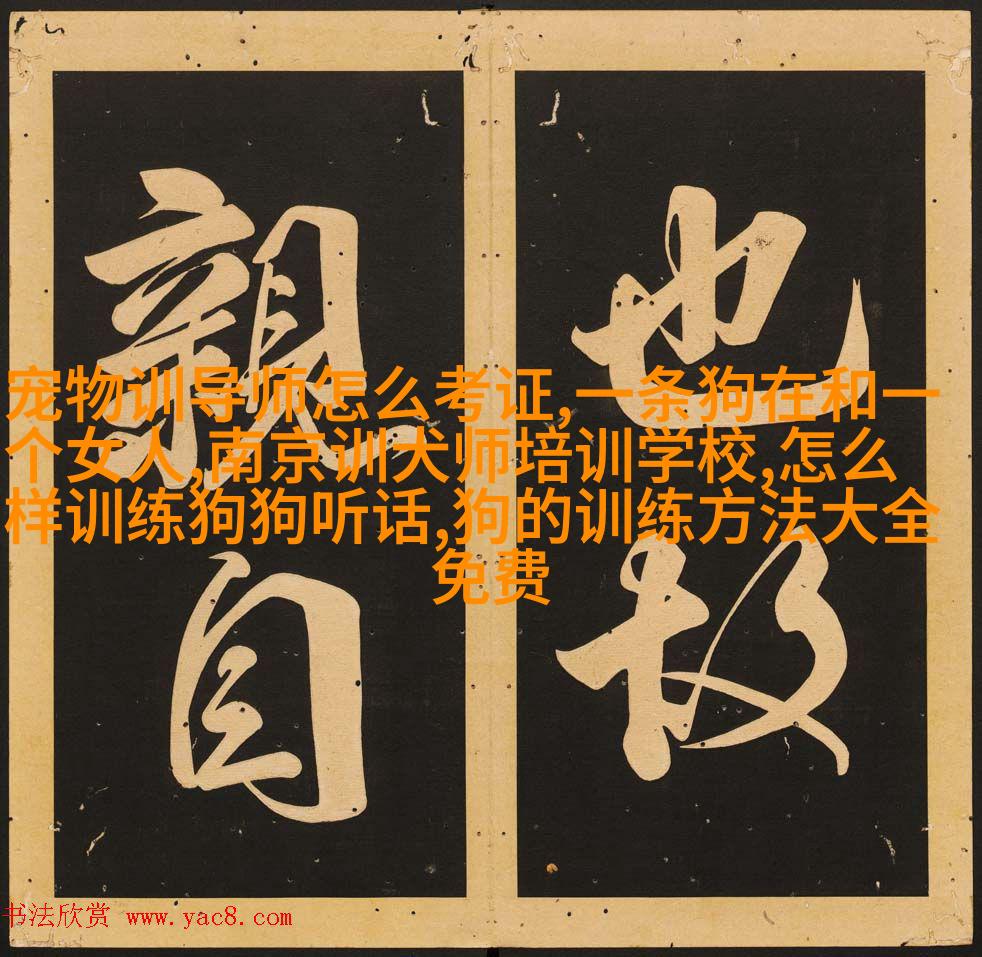 也故
親自
宠物训导师怎么考证,一条狗在和一
个女人,南京训犬师培训学校,怎么
样训练狗狗听话,狗的训练方法大全
免费
书法欣赏 www.yac8.com